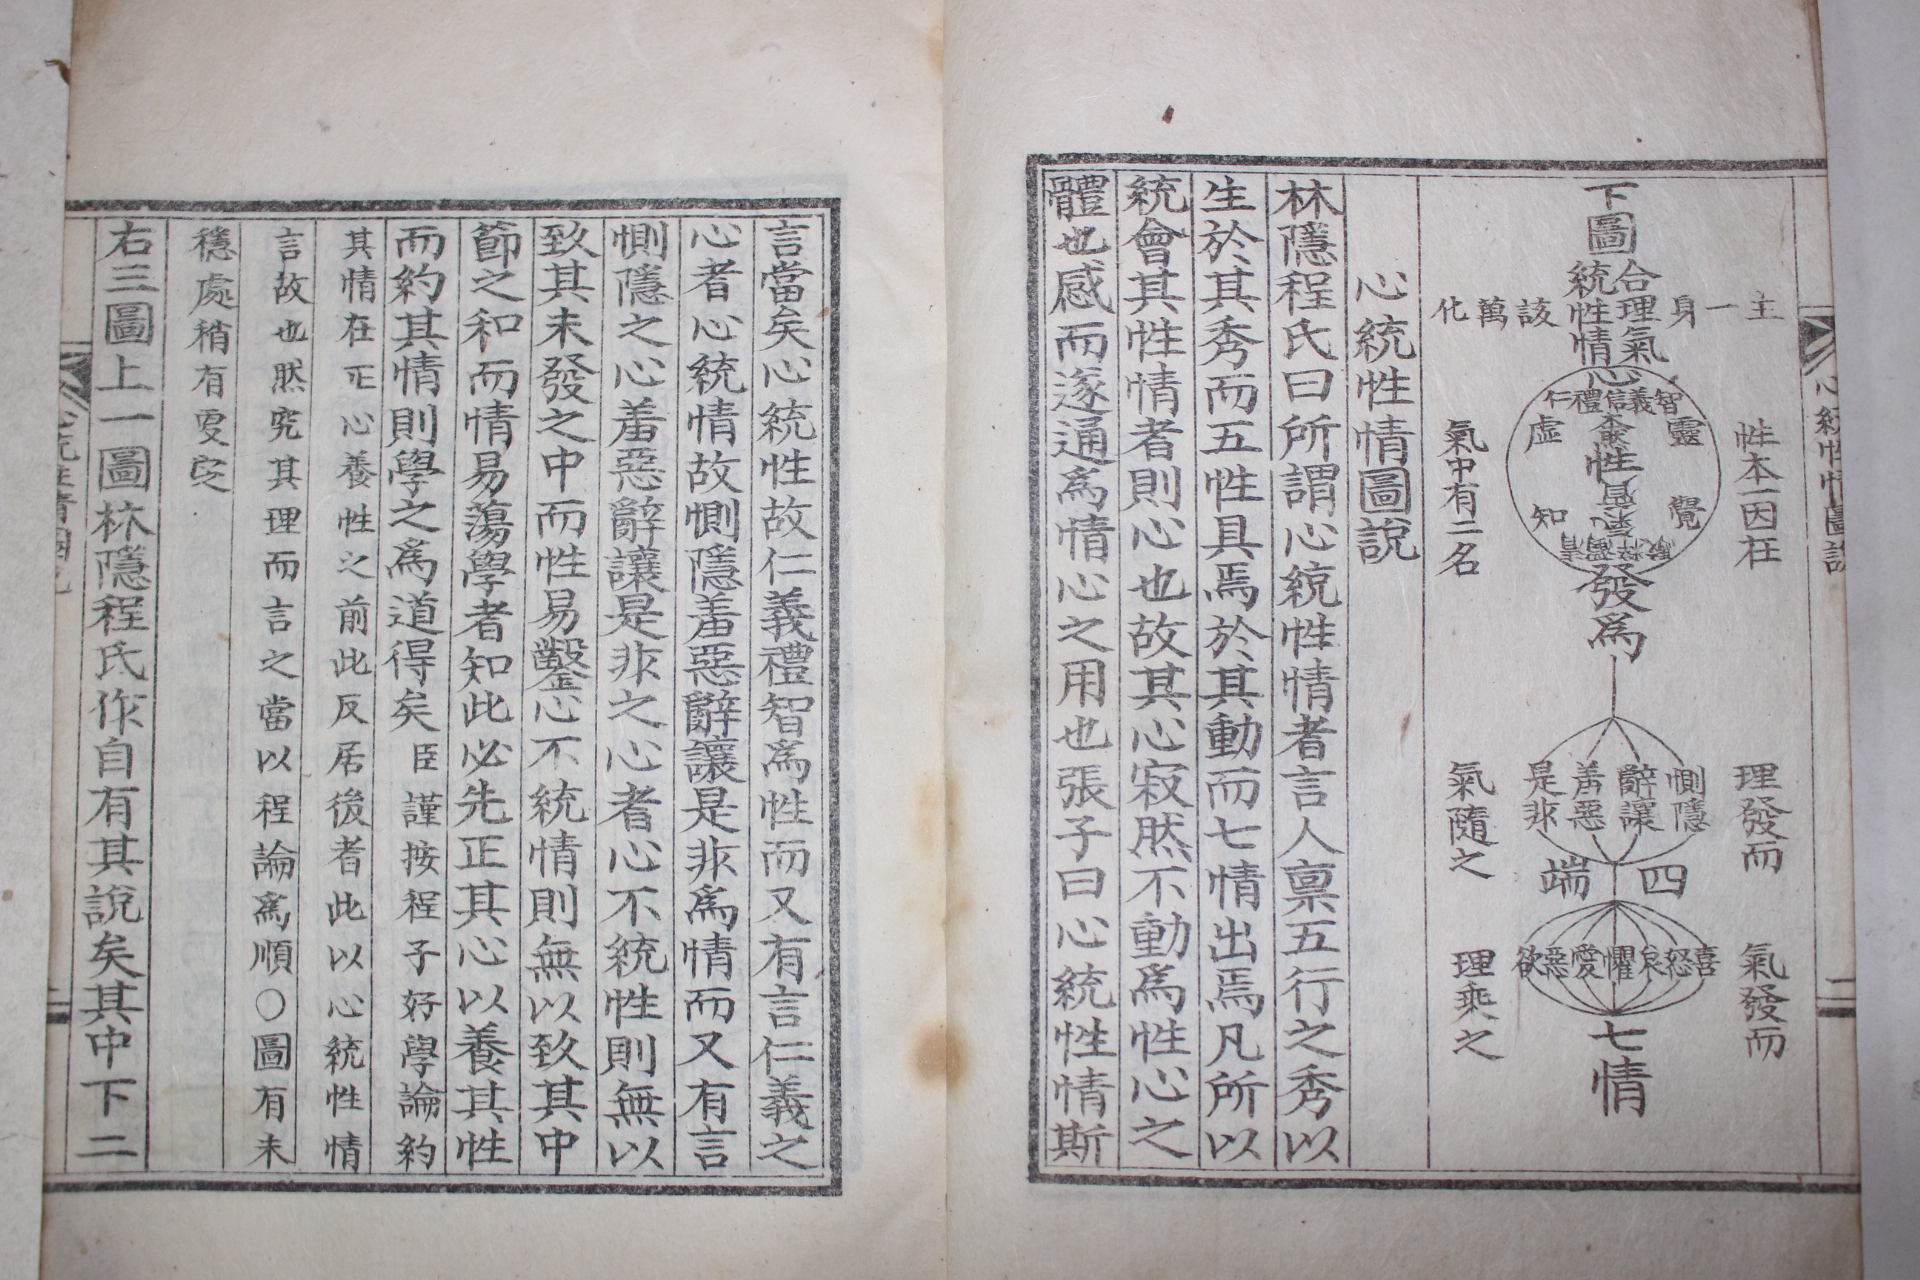 下圖
合理氣
統性情
主一身
該萬化
心
仁禮信義智
虛
靈
知
覺
性
發爲
性本一因在
氣中有二名
惻隱
辭讓
羞惡
是非
四端
理發而
氣隨之
喜怒哀懼愛惡欲
七情
氣發而
理乘之
心統性情圖說
林隱程氏曰所謂心統性情者言人稟五行之秀以
生於其秀而五性具焉於其動而七情出焉凡所以
統會其性情者則心也故其心寂然不動爲性心之
體也感而遂通爲情心之用也張子曰心統性情斯
言當矣心統性故仁義禮智爲性而又有言仁義之
心者心統情故惻隱羞惡辭讓是非爲情而又有言
惻隱之心羞惡辭讓是非之心者心不統性則無以
致其未發之中而性易鑿心不統情則無以致其中
節之和而情易蕩學者知此必先正其心以養其性
而約其情則學之爲道得矣臣謹按程子好學論約
其情在正心養性之前此反居後者此以心統性情
言故也然究其理而言之當以程論爲順○圖有未
穩處稍有更定
右三圖上一圖林隱程氏作自有其說矣其中下二
心統性情圖說
二